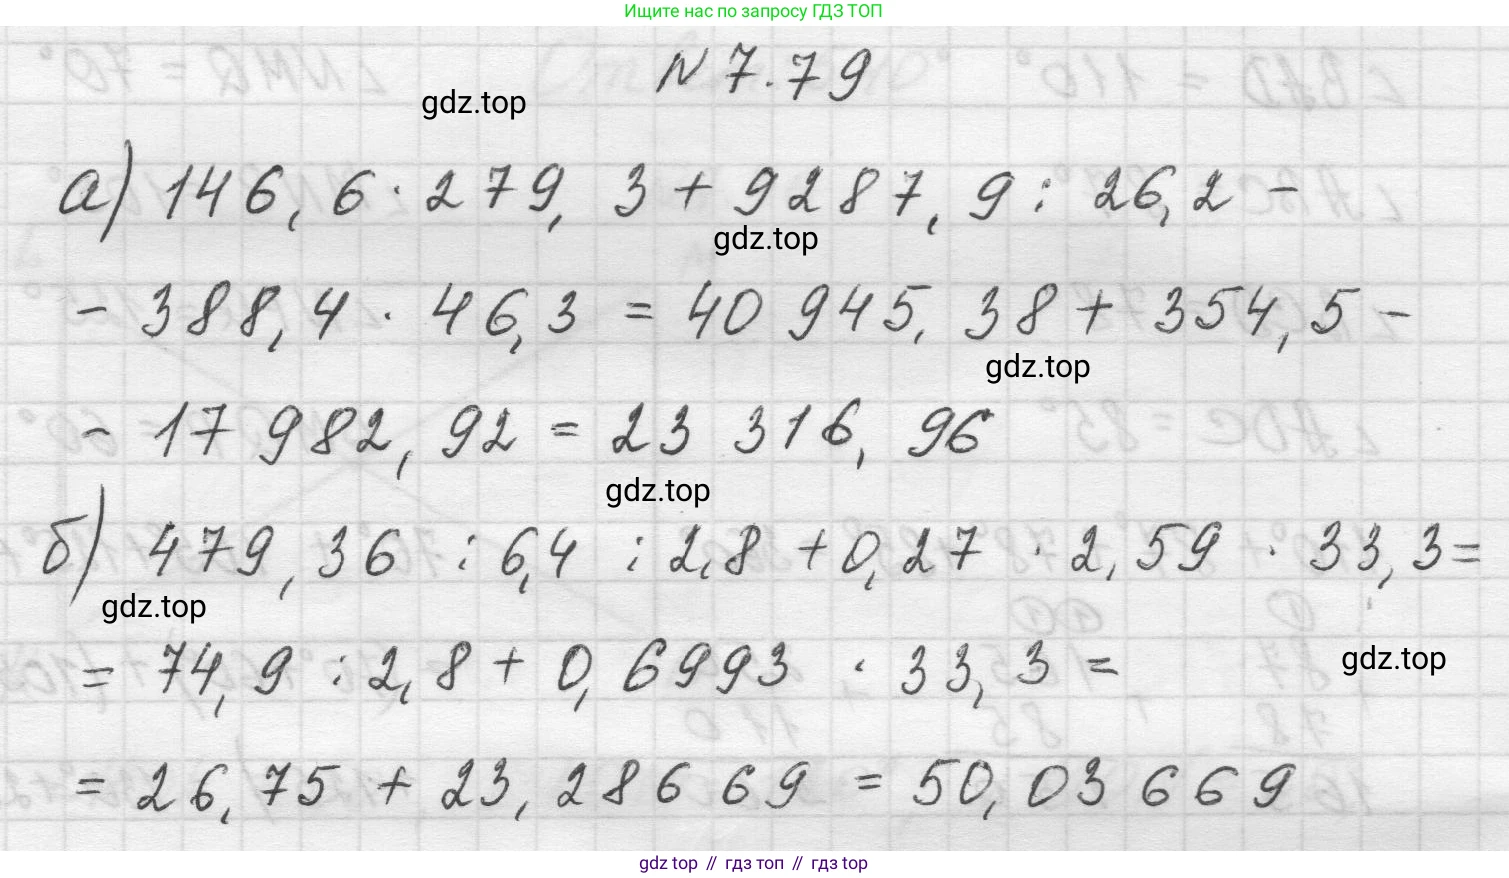 Ищите нас по запросу ГДЗ ТОП
N 7.79
gdz.top
а) 146,6 · 279,3 + 9287,9 : 26,2 -
gdz.top
- 388,4 · 46,3 = 40 945,38 + 354,5 -
gdz.top
- 17 982,92 = 23 316,96
gdz.top
б) 479,36 : 6,4 : 2,8 + 0,27 · 2,59 · 33,3 =
gdz.top
= 74,9 : 2,8 + 0,6993 · 33,3 =
gdz.top
= 26,75 + 23,28669 = 50,03669
gdz top // гдз топ // гдз top